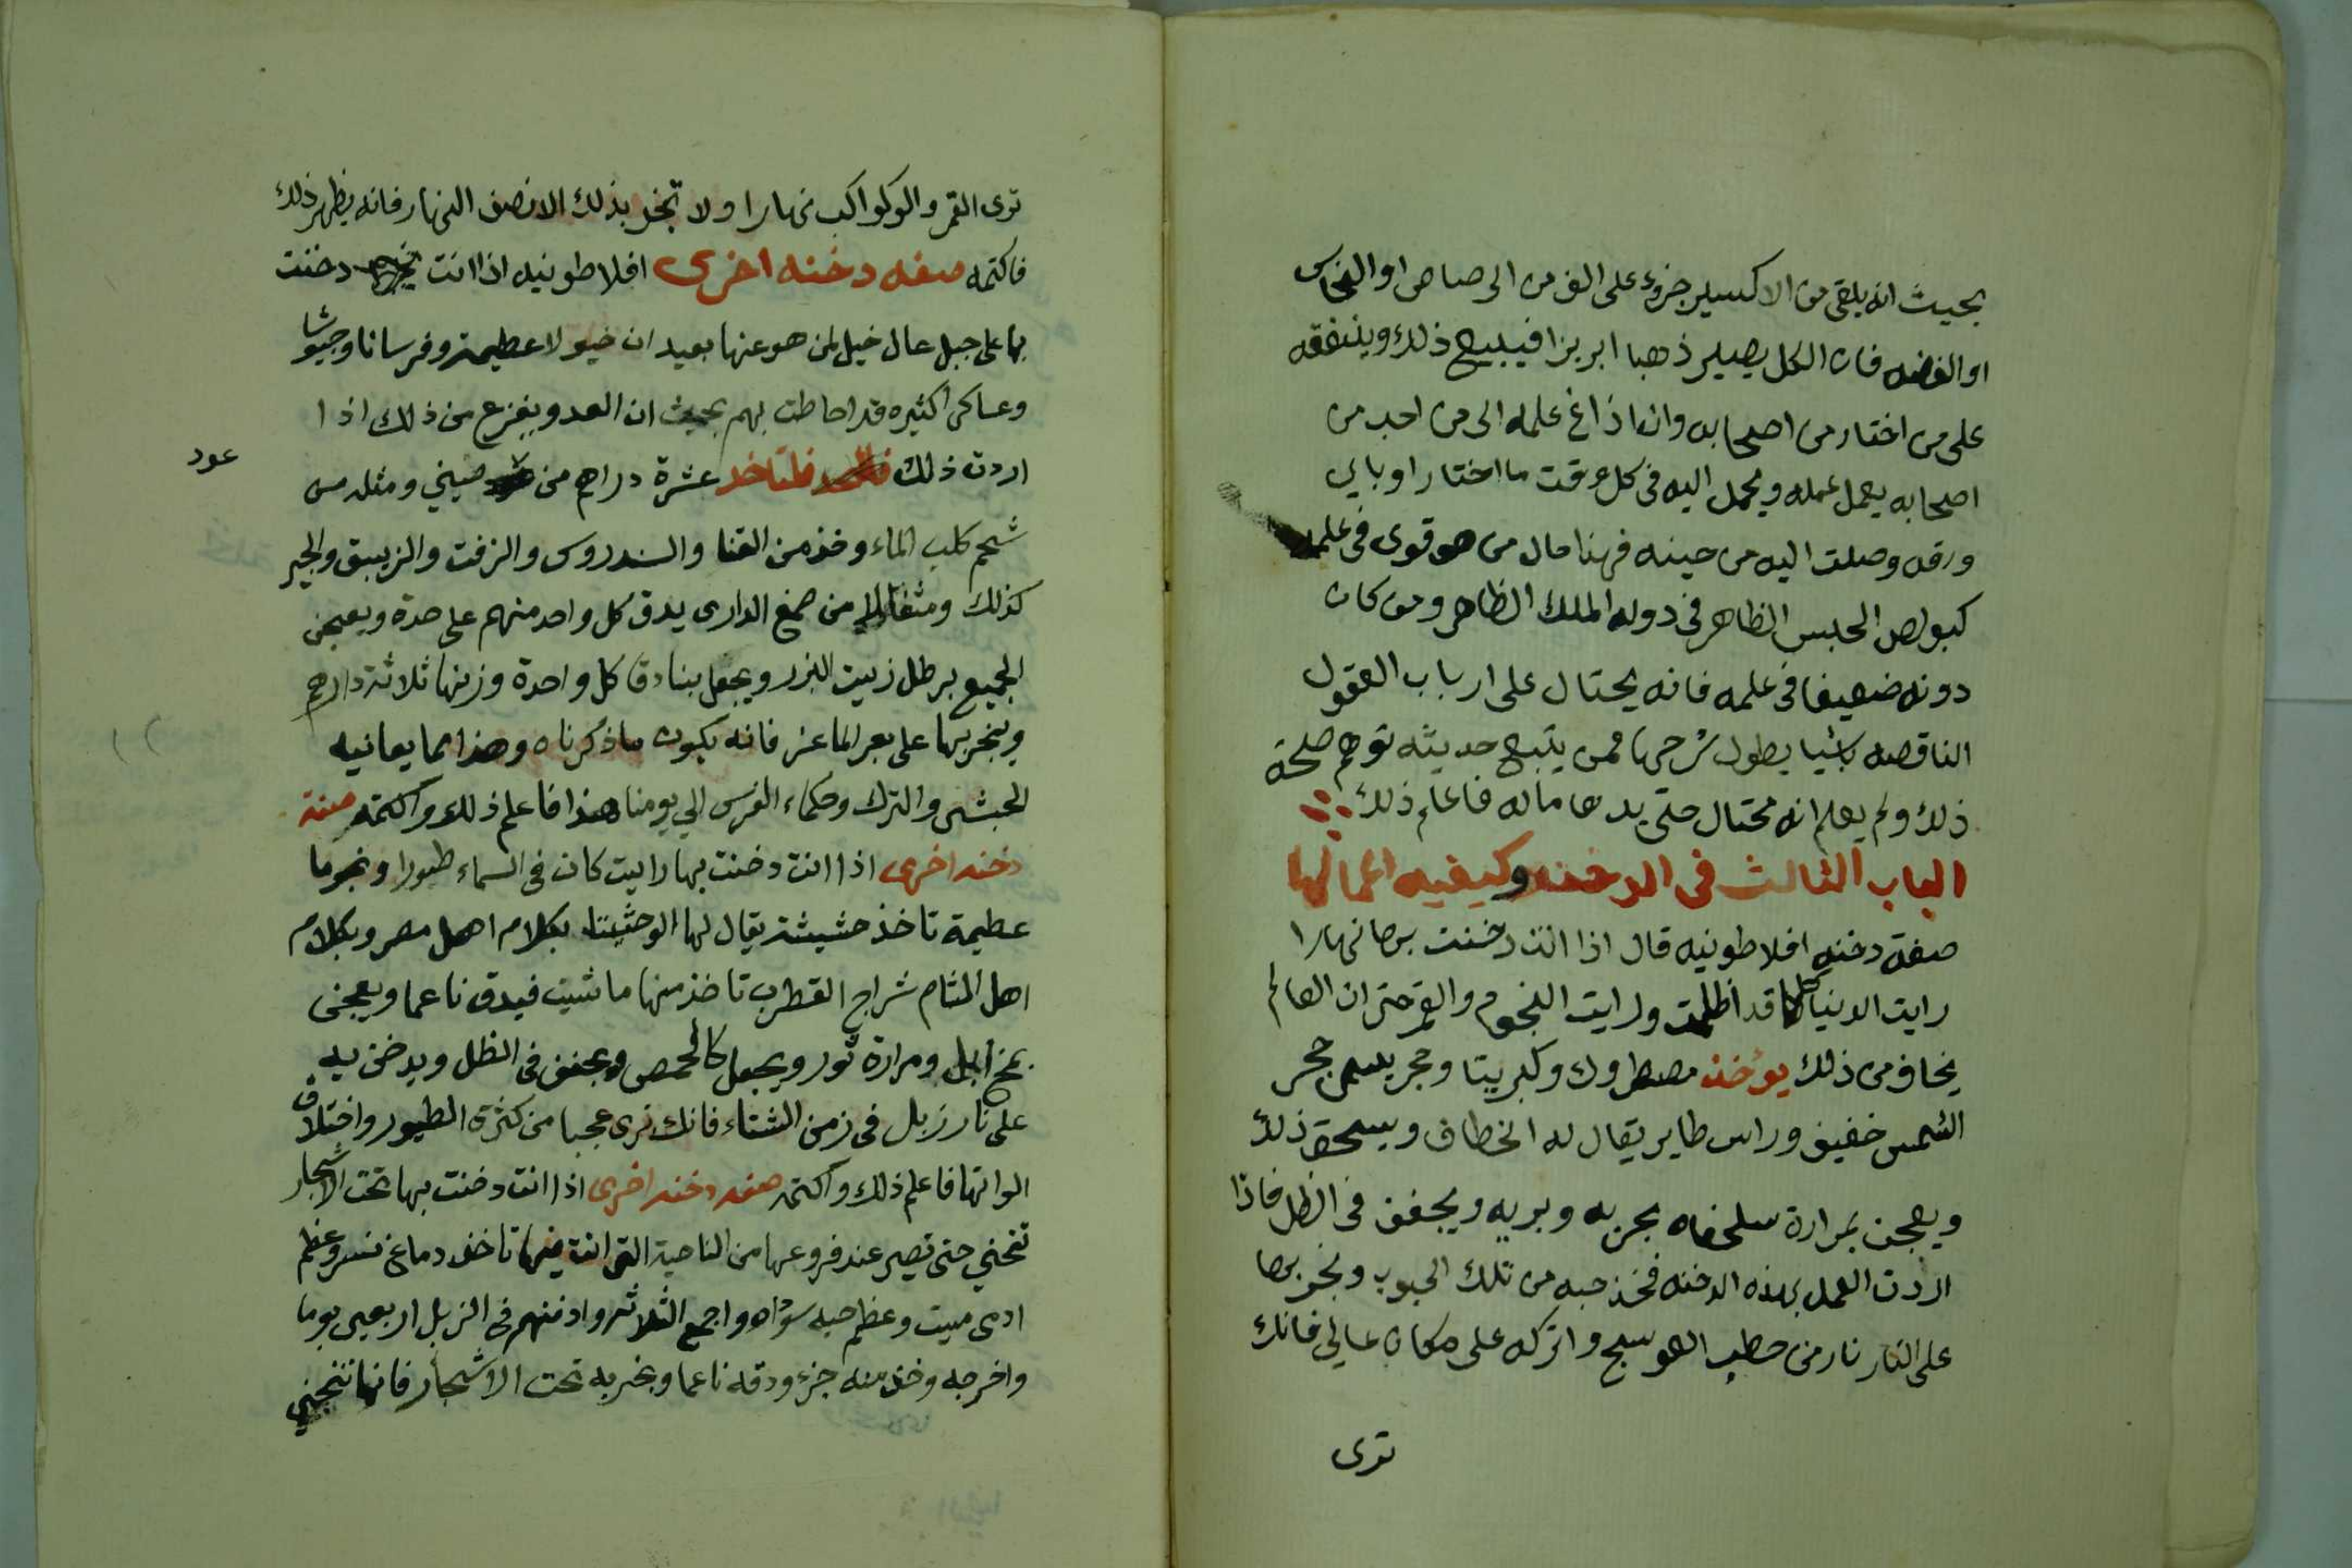 بحيث انه يلقى من الاكسير جزوء على الف من الرصاص او النحاس
او الفضه فان الكل يصير ذهبا ابريزا فيبيع ذلك وينفقه
على من اختار من اصحابه وان اذاغ علمه الى من احب من
اصحابه يعمل عمله ويحمل اليه فى كل وقت ما اختار او باي
ورقه وصلت اليه من حينه فهنا حال من هو قوى فى علمه
كبولص الحبيس الظاهر فى دوله الملك الظاهر ومن كان
دونه ضعيفا فى علمه فانه يحتال على ارباب العقول
الناقصه باشيا يطول شرحها فمن يتبع حديثه توهم صحة
ذلك ولم يعلم انه محتال حتى يدها ماله فاعلم ذلك
الباب الثالث فى الدخنه وكيفيه اعمالها
صفة دخنه افلاطونيه قال اذا انت دخنت بها نهارا
رايت الدنيا كلها قد اظلمت ورايت النجوم والقمر حتى ان العالم
يخاف من ذلك يؤخذ وكبريتا وحجر يسمى حجر
الشمس خفيف وراس طاير يقال له الخطاف ويسحق ذلك
ويعجن بمرارة سلحفاه بحريه وبريه ويجفف فى الظل فاذا
اردت العمل بهذه الدخنه فخذ حبه من تلك الحبوب وبخر بها
على النار نار من حطب العوسج واتركه على مكان عالي فانك
ترى
ترى القمر والوكواكب نهارا ولا تبخر بذلك الا نصف النهار فانه يظهر ذلك
فاكتمه صفه دخنه اخرى افلاطونيه اذا انت دخنت
بها على جبل عال خيل لمن هو عنها بعيد ان خيولا عظيمة وفرسانا وجيوشا
وعساكر اكثيره قد احاطت بهم بحيث ان العدو يفزع من ذلك اذا
اردت ذلك فلتاخذ عشرة دراهم من صيني ومثله من
عود
شحم كلب الماء وخذ من القنا والسندروس والزفت والزيبق والجير
كذلك ومثقال من صمغ الدارى يدق كل واحد منهم على حدة ويعجن
الجميع برطل زيت البزر ويجعل بنادق كل واحدة وزنها ثلاثة دارهم
ويبخر بها على بعر الماعز فانه يكون ماذكرناه وهذا مما يعانيه
الحبش والترك وحكماء الفرس الي يومنا هذا فاعلم ذلك واكتمه صفة
دخنه اخرى اذا انت دخنت بها رايت كان فى السماء طيورا ونجوما
عظيمة تاخذ حشيشة يقال لها بكلام اهل مصر وبكلام
اهل الشام شراج القطرب تاخذ منها ماشيت فيدق ناعما ويعجن
بمخ ابل ومرارة ثور ويجعل كالحمص ويجفف فى الظل ويدخن به
على نار زبل فى زمن الشتاء فانك ترى عجبا من كثرة الطيور واختلاف
الوانها فاعلم ذلك واكتمه صفه دخنه اخرى اذا انت دخنت بها تحت الاشجار
تنحني حتى تصير عند فروعها من الناحية التى انت فيها تاخذ دماغ نسر وعظم
ادمى ميت وعظم حيه سوداه واجمع الثلاثه وادفنهم فى الزبل اربعين يوما
واخرجه وخذ منه جزء ودقه ناعما وبخر به تحت الاشجار فانها تنحني